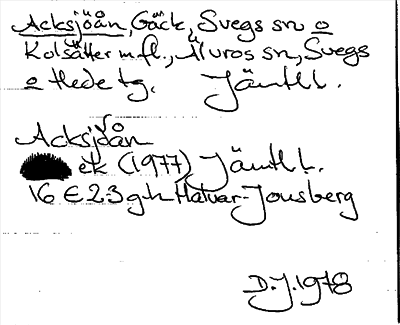 Acksjöån, Gäck, Svegs sn o
Kolsätter m.fl., Älvros sn, Svegs
o Hede tg. Jämtl l.
Acksjöån
ek (1977) Jämtl l.
16 E 2-3 g-h Halvar-Jonsberg
D.J. 1978